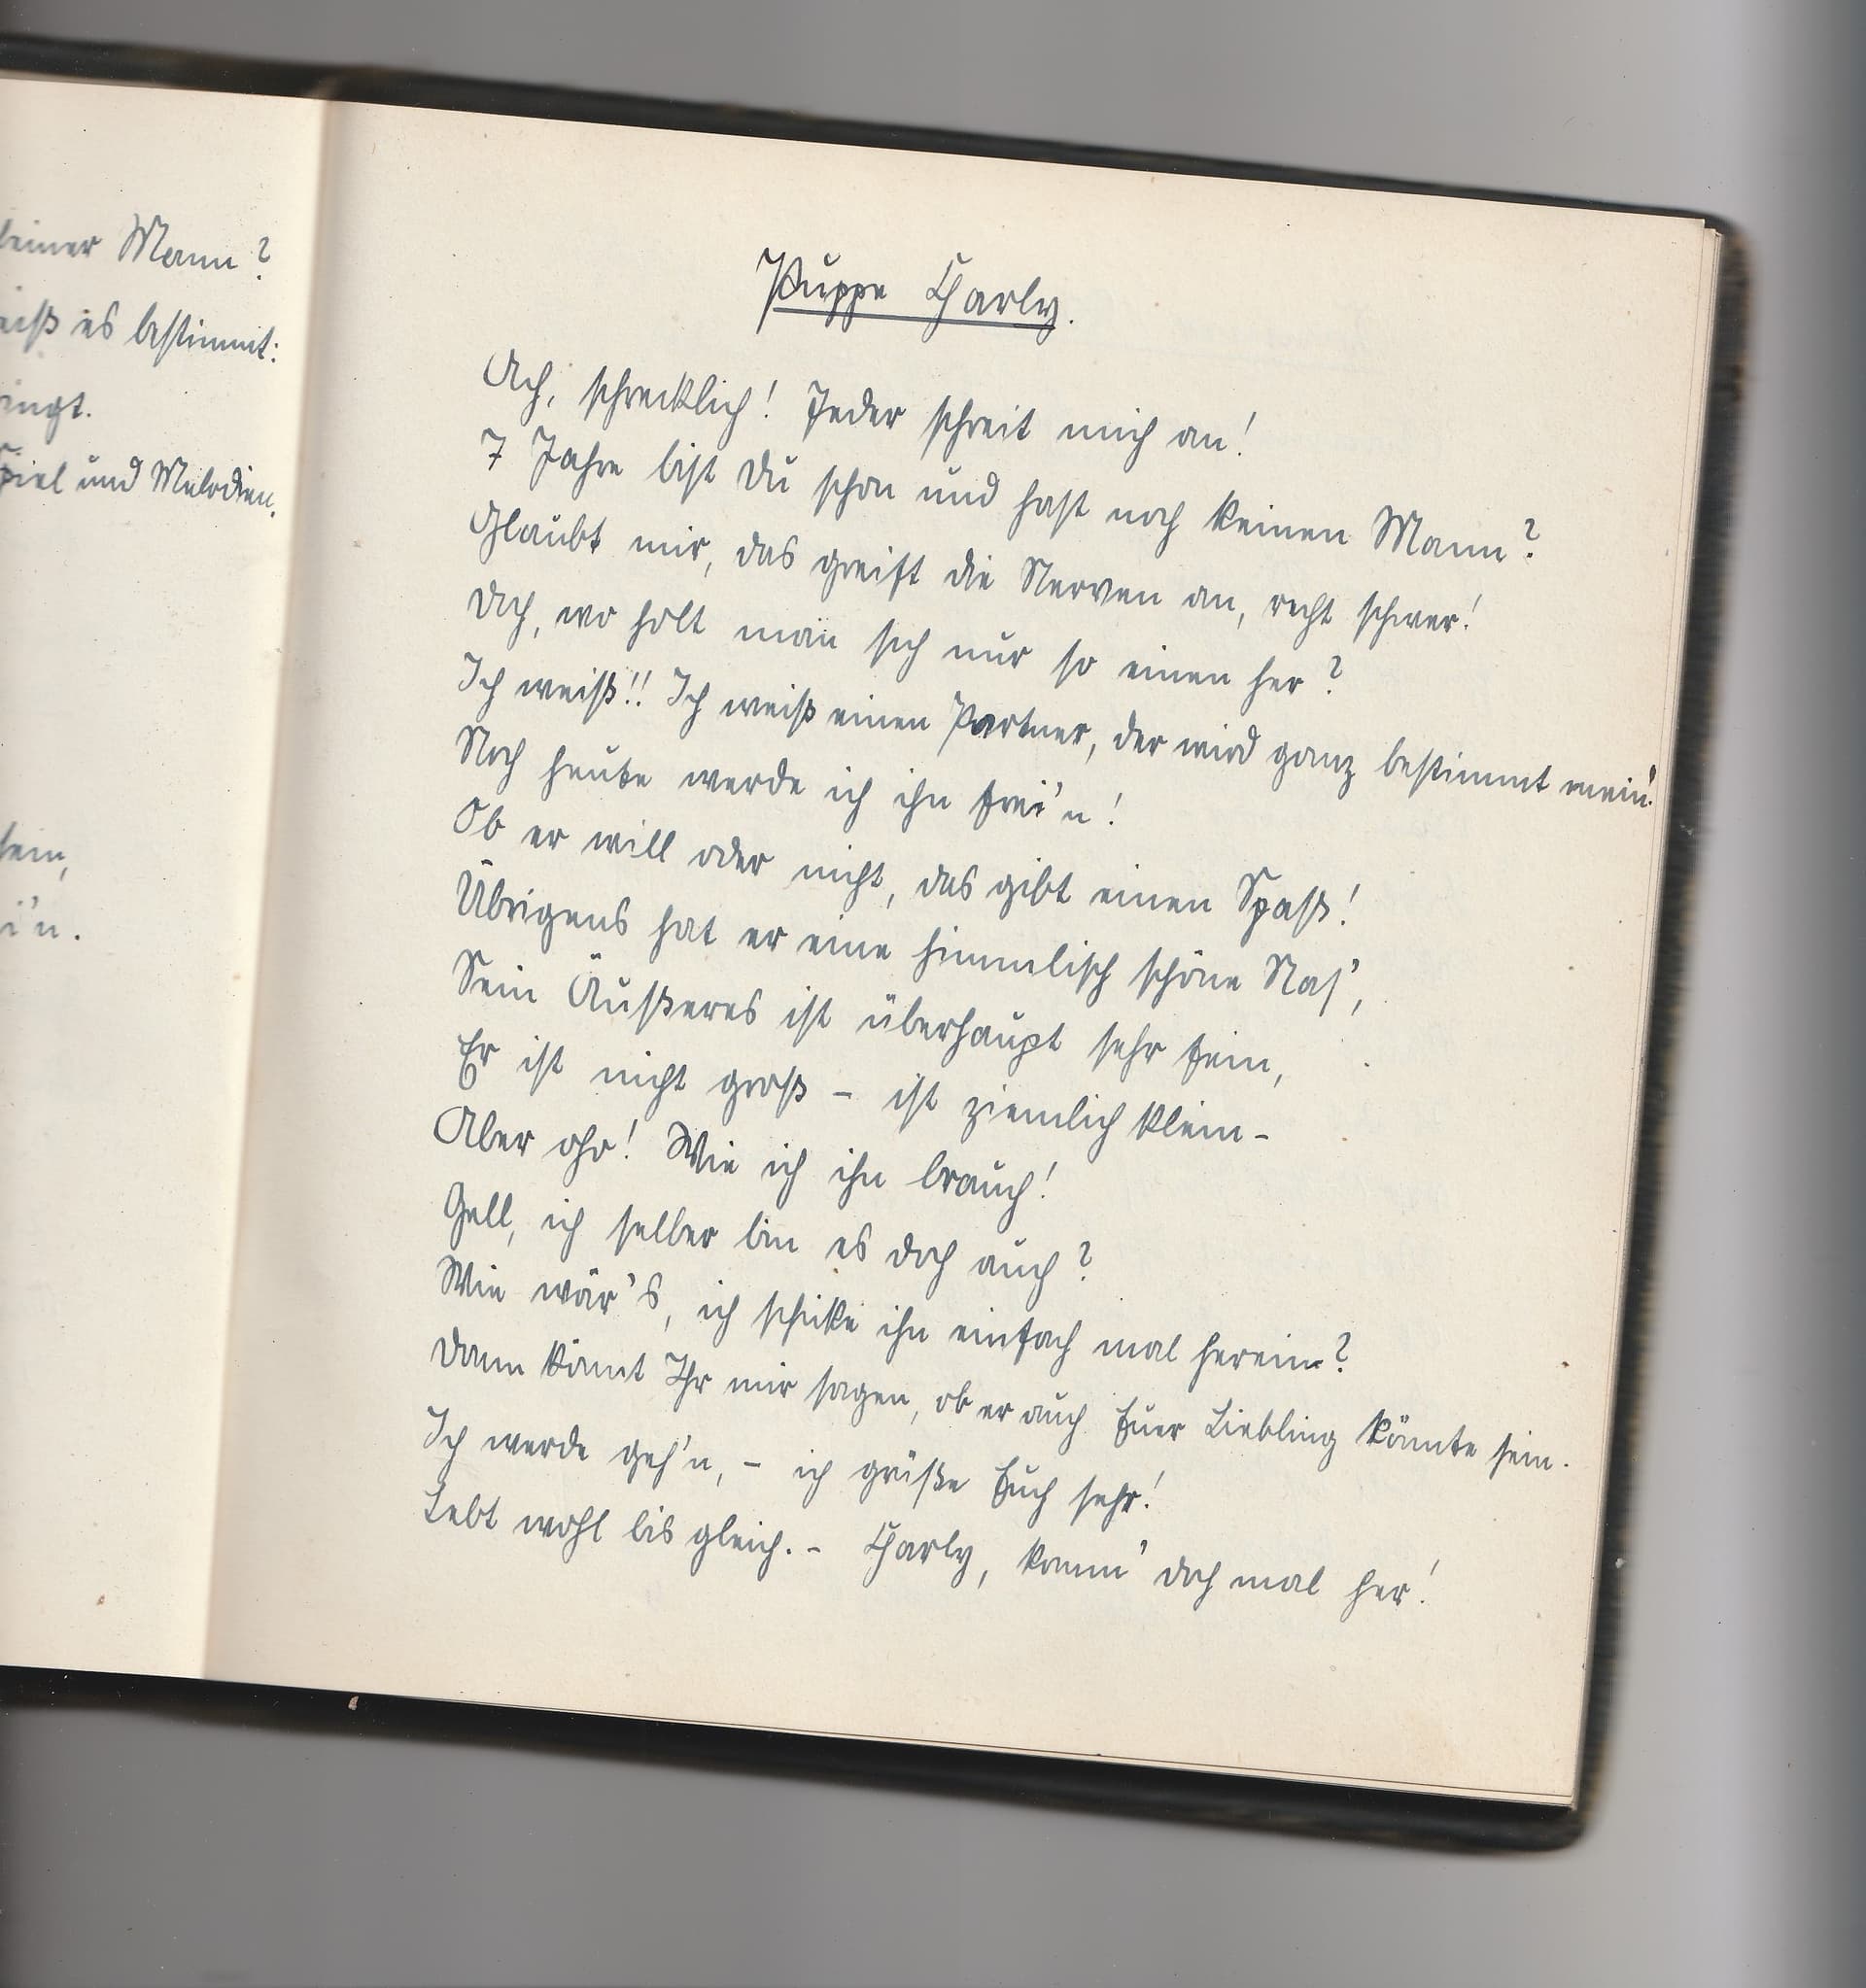 einer Mann?
eiß es bestimmt:
ingt.
piel und Melodien.
sein,
i'n.
Puppe Charly.
Ach, schrecklich! Jeder schreit mich an!
7 Jahre bist Du schon und hast noch keinen Mann?
Glaubt mir, das greift die Nerven an, recht schwer!
Doch, wo holt man sich nur so einen her?
Ich weiß!! Ich weiß einen Partner, der wird ganz bestimmt mein!
Noch heute werde ich ihn frei'n!
Ob er will oder nicht, das gibt einen Spaß!
Übrigens hat er eine himmlisch schöne Nas',
Sein Äußeres ist überhaupt sehr fein,
Er ist nicht groß - ist ziemlich klein -
Aber oho! Wie ich ihn brauch!
Gell, ich selber bin es doch auch?
Wie wär's, ich schicke ihn einfach mal herein?
Dann könnt Ihr mir sagen, ob er auch Euer Liebling könnte sein.
Ich werde geh'n, - ich grüße Euch sehr!
Lebt wohl bis gleich. - Charly, komm' doch mal her!